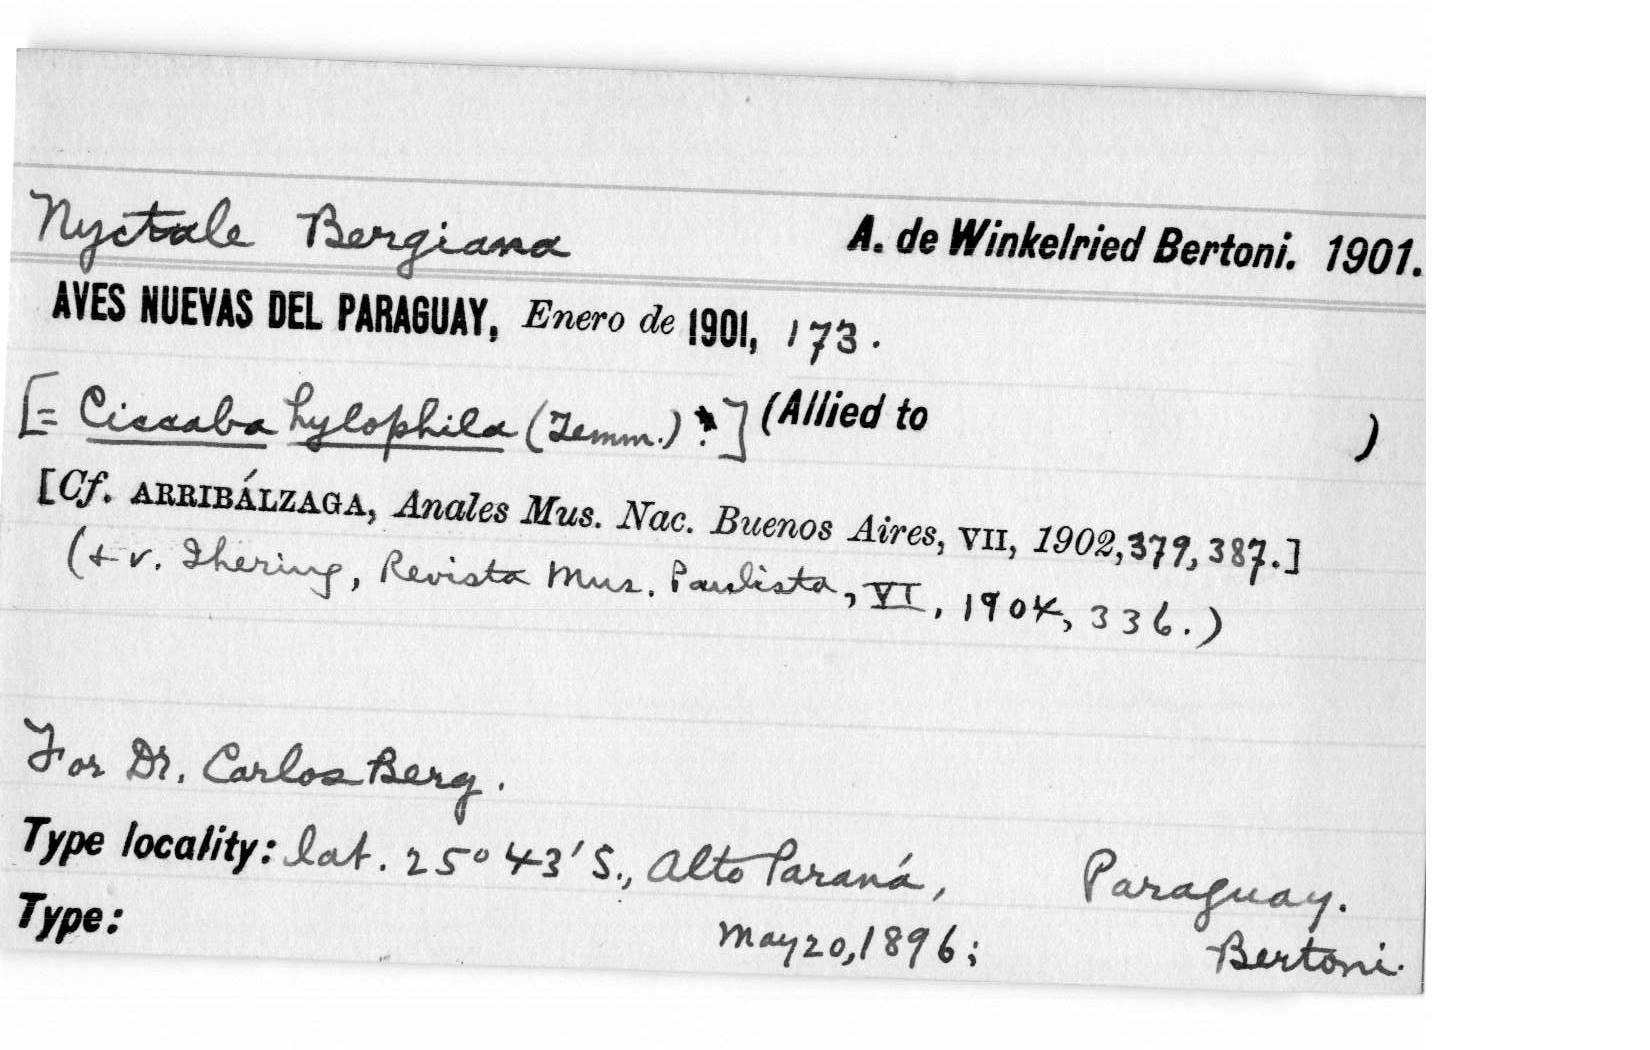 Nyctale Bergiana A. de Winkelried Bertoni. 1901.
AVES NUEVAS DEL PARAGUAY, Enero de 1901, 173.
[= Ciccaba hylophila (Temm.) ] (Allied to )
[Cf. ARRIBÁLZAGA, Anales Mus. Nac. Buenos Aires, VII, 1902, 379, 387.]
(+ v. Ihering, Revista Mus. Paulista, VI, 1904, 336.)
For Dr. Carlos Berg.
Type locality: lat. 25° 43' S., Alto Paraná, Paraguay.
Type: May 20, 1896; Bertoni.